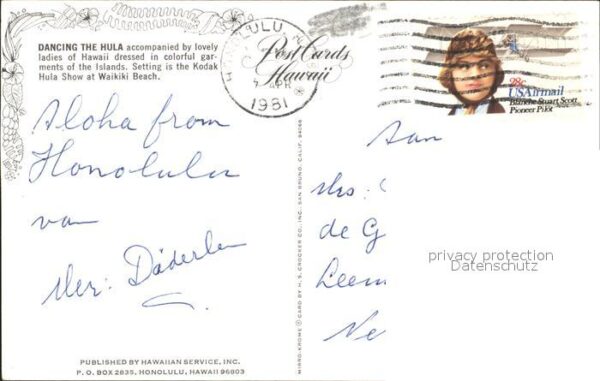 DANCING THE HULA accompanied by lovely
ladies of Hawaii dressed in colorful gar-
ments of the Islands. Setting is the Kodak
Hula Show at Waikiki Beach.
HONOLULU
APR
1981
Post Cards
Hawaii
28c
USAirmail
Blanche Stuart Scott
Pioneer Pilot
Aloha from
Honolulu
van
Mer: Däderlen
Aan
Mrs:
de G
Leem
Ne
privacy protection
Datenschutz
MIRRO-KROME® CARD BY H. S. CROCKER CO., INC. SAN BRUNO, CALIF. 94066
PUBLISHED BY HAWAIIAN SERVICE, INC.
P.O. BOX 2835, HONOLULU, HAWAII 96803